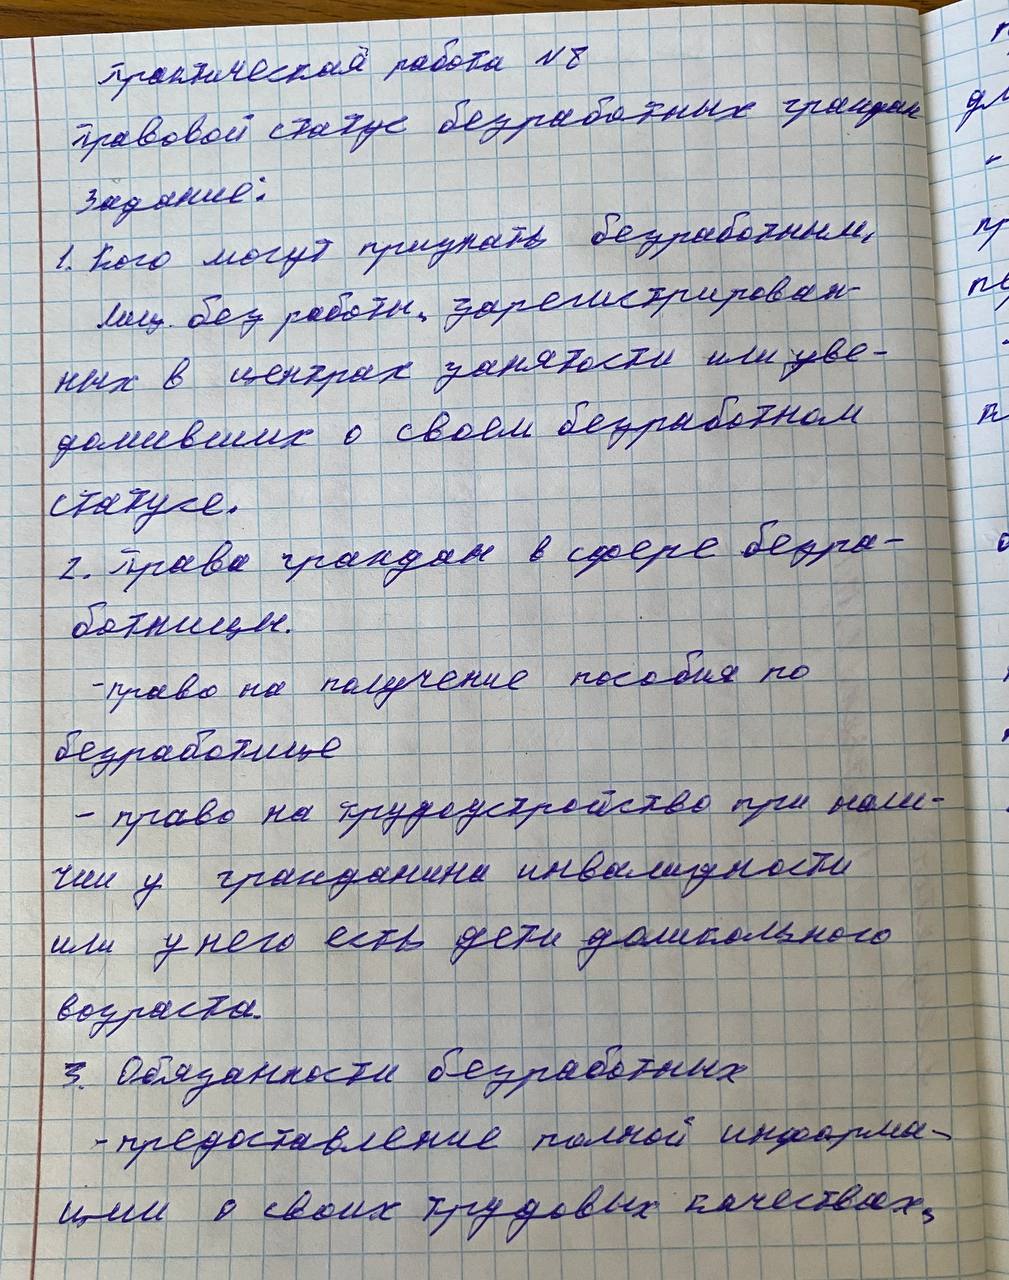 Практической работа №8
Правовой статус безработных граждан
Задание:
1. Кого могут признать безработным,
Лиц. без работы, зарегистрирован-
ных в центрах занятости или уве-
домивших о своем безработном
статусе.
2. Права граждан в сфере безра-
ботницы.
- право на получение пособия по
безработице
- право на трудоустройство при нали-
чии у гражданина инвалидности
или у него есть дети дошкольного
возраста.
3. Обязанности безработных
- предоставление полной информа-
ции о своих трудовых качествах,